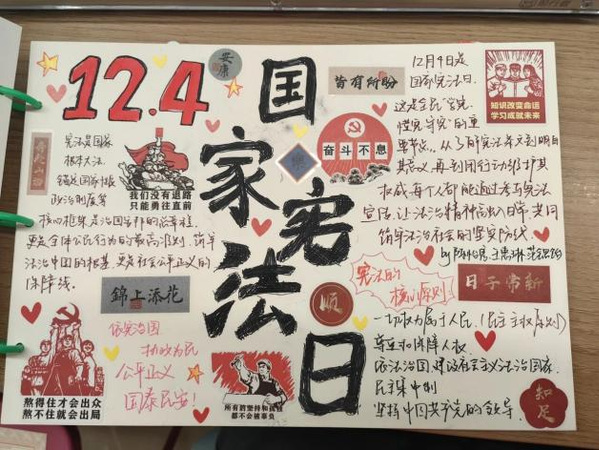 12.4
安康
国家宪法日
宪法是国家
根本大法
锚定国家性质
政治制度等
核心框架是治国安邦的总章程,
更是全体公民行为的最高准则,筑牢
法治中国的根基,更是社会公平正义的
保障线。
我们没有退路
只能勇往直前
錦上添花
依宪治国
执政为民
公平正义
国泰民安!
熬得住才会出众
熬不住就会出局
所有的坚持和孤独
都不会被辜负
皆有所盼
奋斗不息
顺
12月4日是
国家宪法日。
这是全民“学宪
悟宪守宪”的重
要节点,从了解宪法条文到明白
其意义,再到用行动维护其
权威,每个人都能通过学习宪法
宣传,让法治精神融入日常,共同
筑牢法治社会的坚实防线
知识改变命运
学习成就未来
by
宪法的
核心原则
日子常新
一切权力属于人民(民主主权原则)
尊重和保障人权
依法治国 建设社会主义法治国家
民主集中制
坚持中国共产党的领导.
知足